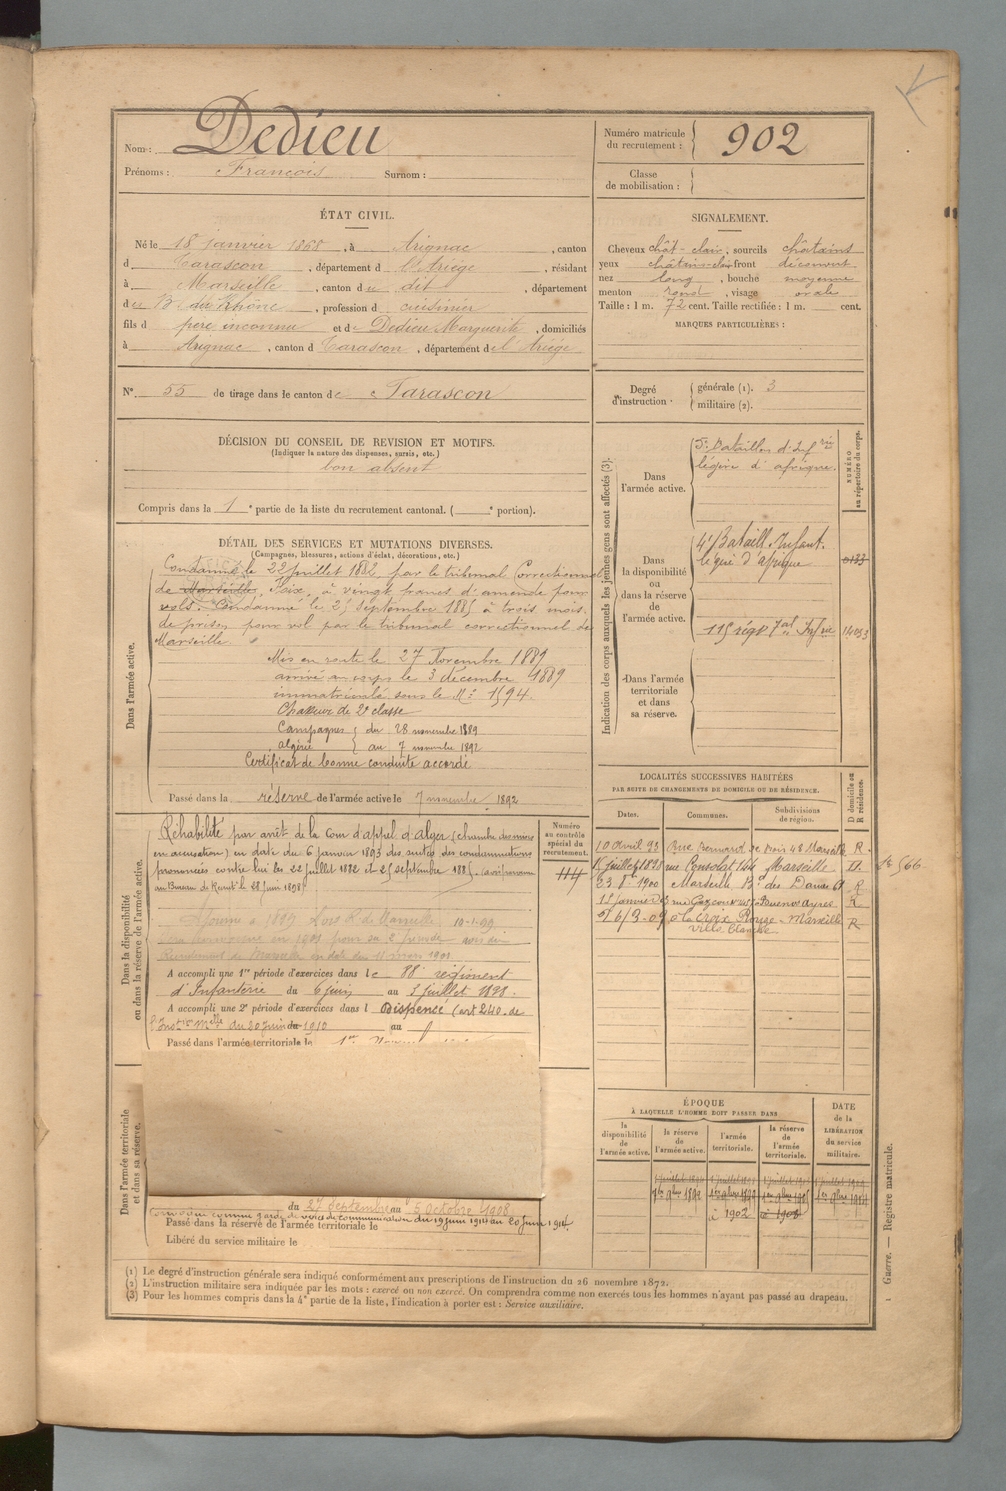 Nom : Dedieu
Prénoms : François Surnom :
Numéro matricule du recrutement : 902
Classe de mobilisation :
ÉTAT CIVIL.
Né le 18 janvier 1868, à Arignac, canton
d Tarascon, département d l'Ariège, résidant
à Marseille, canton du dit, département
des B. du Rhône, profession d cuisinier
fils d père inconnu et de Dedieu Marguerite, domiciliés
à Arignac, canton d Tarascon, département de l'Ariège
N° 55 de tirage dans le canton de Tarascon
SIGNALEMENT.
Cheveux chât-clair, sourcils châtains
yeux châtain-clair front découvert
nez long, bouche moyenne
menton rond, visage ovale
Taille : 1 m. 72 cent. Taille rectifiée : 1 m. cent.
MARQUES PARTICULIÈRES :
Degré d'instruction générale (1). 3
militaire (2).
DÉCISION DU CONSEIL DE REVISION ET MOTIFS.
(Indiquer la nature des dispenses, sursis, etc.)
bon absent
Compris dans la 1e partie de la liste du recrutement cantonal. ( e portion).
DÉTAIL DES SERVICES ET MUTATIONS DIVERSES.
(Campagnes, blessures, actions d'éclat, décorations, etc.)
Dans l'armée active.
Condamné le 22 juillet 1882 par le tribunal Correctionnel
de Marseille, à vingt francs d'amende pour
vols. Condamné le 25 septembre 1885 à trois mois
de prison pour vol par le tribunal correctionnel de
Marseille.
Mis en route le 27 Novembre 1889
arrivé au corps le 3 décembre 1889
immatriculé sous le N° 1594.
Chasseur de 2e classe
Campagnes du 28 novembre 1889
algérie au 7 novembre 1892
Certificat de bonne conduite accordé
Passé dans la réserve de l'armée active le 7 novembre 1892
Indication des corps auxquels les jeunes gens sont affectés (3).
NUMÉRO au répertoire du corps.
Dans l'armée active.
5e Bataillon d'Infrie
légère d'afrique.
Dans la disponibilité ou dans la réserve de l'armée active.
4e Bataill. Infant.
légère d'afrique 0133
115 régt Infrie
Dans l'armée territoriale et dans sa réserve.
Dans la disponibilité ou dans la réserve de l'armée active.
Numéro au contrôle spécial du recrutement.
114
Réhabilité par arrêt de la Cour d'appel d'alger (chambre des mises
en accusation) en date du 6 janvier 1893 des suites des condamnations
prononcées contre lui les 22 juillet 1882 et 25 septembre 1885
au Bureau de Recrut. le 28 juin 1898
A accompli une 1re période d'exercices dans le 88e régiment
d'Infanterie du 6 juin au 3 juillet 1898.
A accompli une 2e période d'exercices dans l Dispensé (art 240 de
l'Inston Melle du 20 juin 1910 au
Passé dans l'armée territoriale le
LOCALITÉS SUCCESSIVES HABITÉES
PAR SUITE DE CHANGEMENTS DE DOMICILE OU DE RÉSIDENCE.
Dates. Communes. Subdivisions de région. D domicile ou R résidence.
10 avril 93 Rue Bernard du Bois 48 Marseille R.
juillet 1898 rue Consolat 144 Marseille D.
1900 Marseille Bd des Dames 61 R
Buenos ayres R
16/3-09 La Croix Rouge - Marseille R
villa Blanche
566
Dans l'armée territoriale et dans sa réserve.
du 27 Septembre au 5 octobre 1908
comme garde de voies de communication du 19 juin 1914 au 20 juin 1914
Passé dans la réserve de l'armée territoriale le
Libéré du service militaire le
ÉPOQUE
À LAQUELLE L'HOMME DOIT PASSER DANS
la disponibilité de l'armée active. la réserve de l'armée active. l'armée territoriale. la réserve de l'armée territoriale.
DATE de la LIBÉRATION du service militaire.
1902
(1) Le degré d'instruction générale sera indiqué conformément aux prescriptions de l'instruction du 26 novembre 1872.
(2) L'instruction militaire sera indiquée par les mots : exercé ou non exercé. On comprendra comme non exercés tous les hommes n'ayant pas passé au drapeau.
(3) Pour les hommes compris dans la 4e partie de la liste, l'indication à porter est : Service auxiliaire.
Guerre. — Registre matricule.